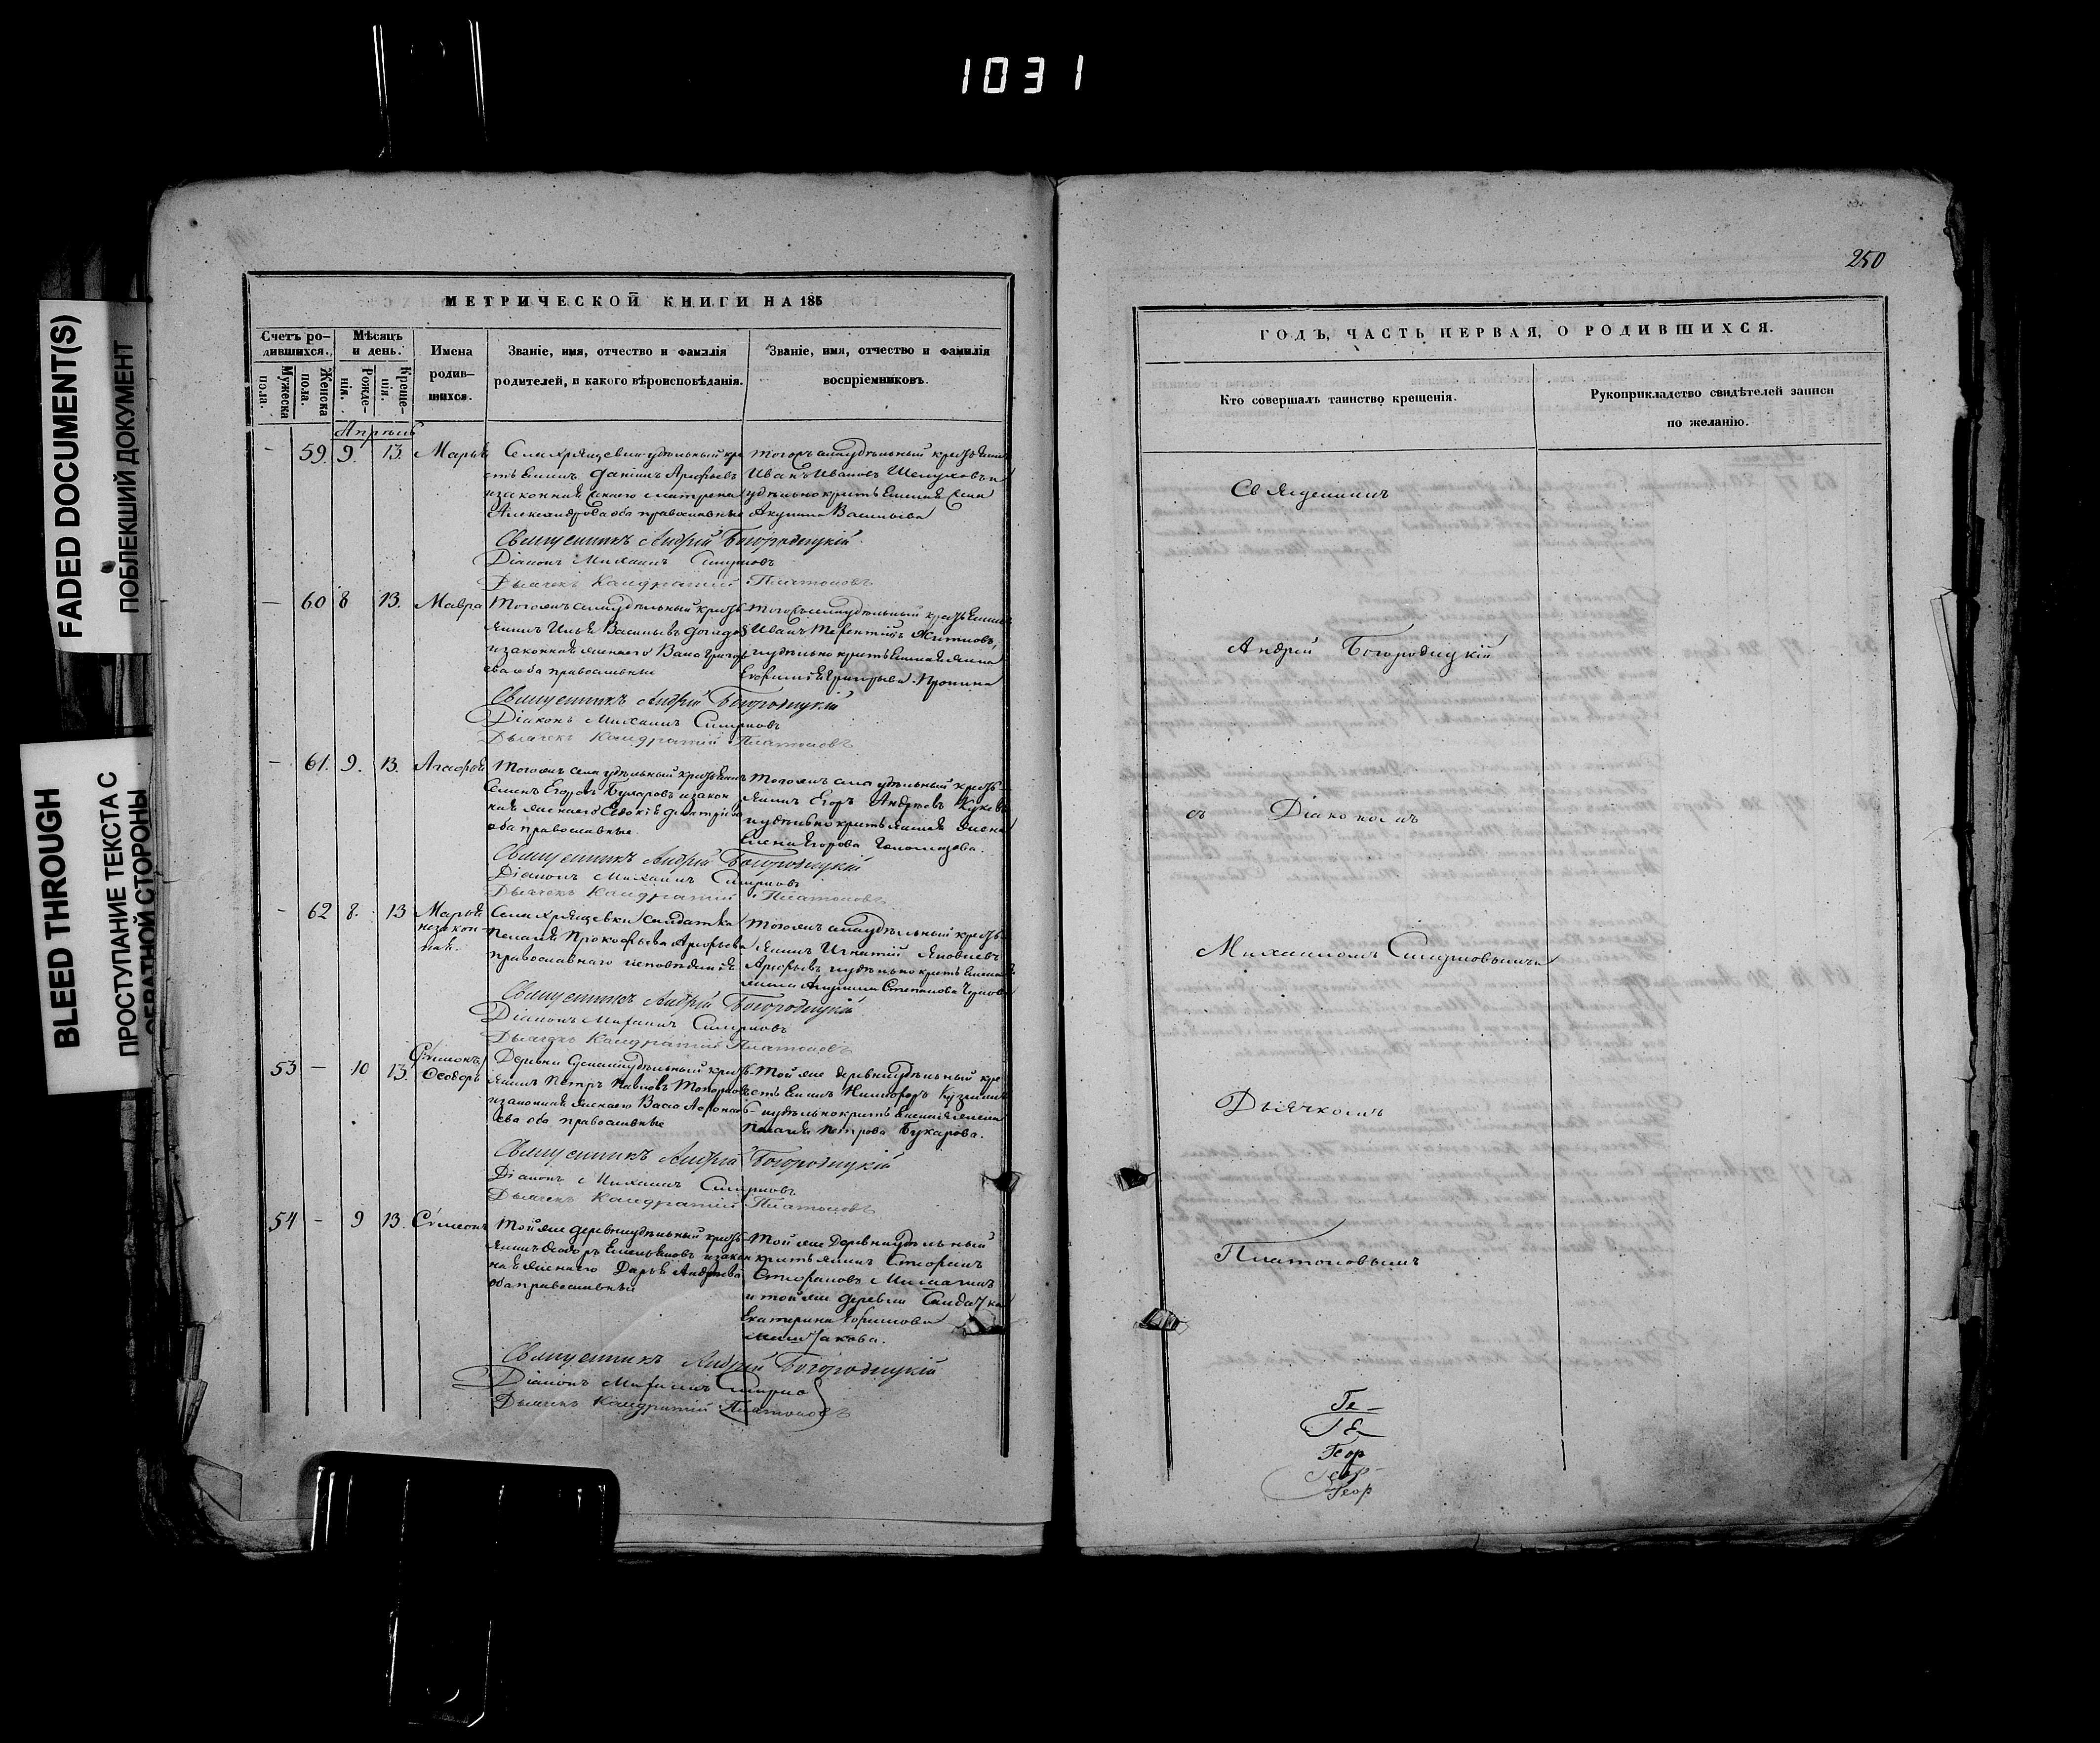 1031
FADED DOCUMENT(S)
ПОБЛЕКШИЙ ДОКУМЕНТ
BLEED THROUGH
ПРОСТУПАНИЕ ТЕКСТА С
ОБРАТНОЙ СТОРОНЫ
МЕТРИЧЕСКОЙ КНИГИ НА 185
Счетъ ро-
дившихся.
Мѣсяцъ
и день.
Мужеска
пола.
Женска
пола.
Рожде-
нія.
Креще-
нія.
Имена
родив-
шихся.
Званіе, имя, отчество и фамилія
родителей, и какого вѣроисповѣданія.
Званіе, имя, отчество и фамилія
воспріемниковъ.
Апрель
- 59. 9. 13. Марья
Села Хрящевки удѣльный кре
стьянинъ Даніилъ Арефьевъ
и законная
Александрова оба православные
того села удѣльный крестьянин
Иванъ Ивановъ Шелуховъ и
удѣльно крестьянская
Акулина Васильева
Священникъ Андрей Богородицкій
Діаконъ Михаилъ Смирновъ
Дьячекъ Кондратій Платоновъ
— 60 8 13. Мавра
Тогожъ села удѣльный кресть-
янинъ Илья Васильевъ
и законная жена его Васса Григорь
ева оба православные
Тогожъ села удѣльный крестьянин
Иванъ Терентьевъ Житковъ,
и удѣльно крестьянская жена
Евфимія Григорьева Пронина
Священникъ Андрей Богородицкій
Діаконъ Михаилъ Смирновъ
Дьячекъ Кондратій Платоновъ
- 61. 9. 13. Агафья
Тогожъ села удѣльный крестьянинъ
Семенъ Егоровъ Бухаровъ и закон
ная жена его Евдокія Дмитріева
оба православные
Тогожъ села удѣльный кресть-
янинъ Егоръ Андреевъ
и удѣльно крестьянская жена
Елена Егорова
Священникъ Андрей Богородицкій
Діаконъ Михаилъ Смирновъ
Дьячекъ Кондратій Платоновъ
- 62 8. 13 Марья
незакон-
ная.
Села Хрящевки солдатка
Пелагея Прокофьева Арефьева
православнаго исповѣданія
Тогожъ села удѣльный кресть-
янинъ Игнатій Яковлевъ
Арефьевъ и удѣльно крестьянская
Акулина Степанова
Священникъ Андрей Богородицкій
Діаконъ Михаилъ Смирновъ
Дьячекъ Кондратій Платоновъ
53 — 10 13. Сѵмеонъ,
Ѳеодоръ
Деревни Сускана удѣльный кресть-
янинъ Петръ Павловъ Топорковъ
и законная жена его Васса
ева оба православные
Той же деревни удѣльный кре
стьянинъ Никифоръ Кузьминъ
и удѣльно крестьянская жена
Пелагея Петрова Бухарова.
Священникъ Андрей Богородицкій
Діаконъ Михаилъ Смирновъ
Дьячекъ Кондратій Платоновъ
54 - 9 13. Сѵмеонъ
Той же деревни удѣльный кресть-
янинъ Ѳеодоръ Емельяновъ и закон
ная жена его Дарья Андреева
оба православные
Той же деревни удѣльный
крестьянинъ Стефанъ
Стефановъ
и той же деревни солдатка
Екатерина Ефимова
Священникъ Андрей Богородицкій
Діаконъ Михаилъ Смирновъ
Дьячекъ Кондратій Платоновъ
250
ГОДЪ, ЧАСТЬ ПЕРВАЯ, О РОДИВШИХСЯ.
Кто совершалъ таинство крещенія.
Рукоприкладство свидѣтелей записи
по желанію.
Священникъ
Андрей Богородицкій
съ Діакономъ
Михаиломъ Смирновымъ и
Дьячкомъ
Платоновымъ
Ге-
Ге
Геор
Геор
Геор